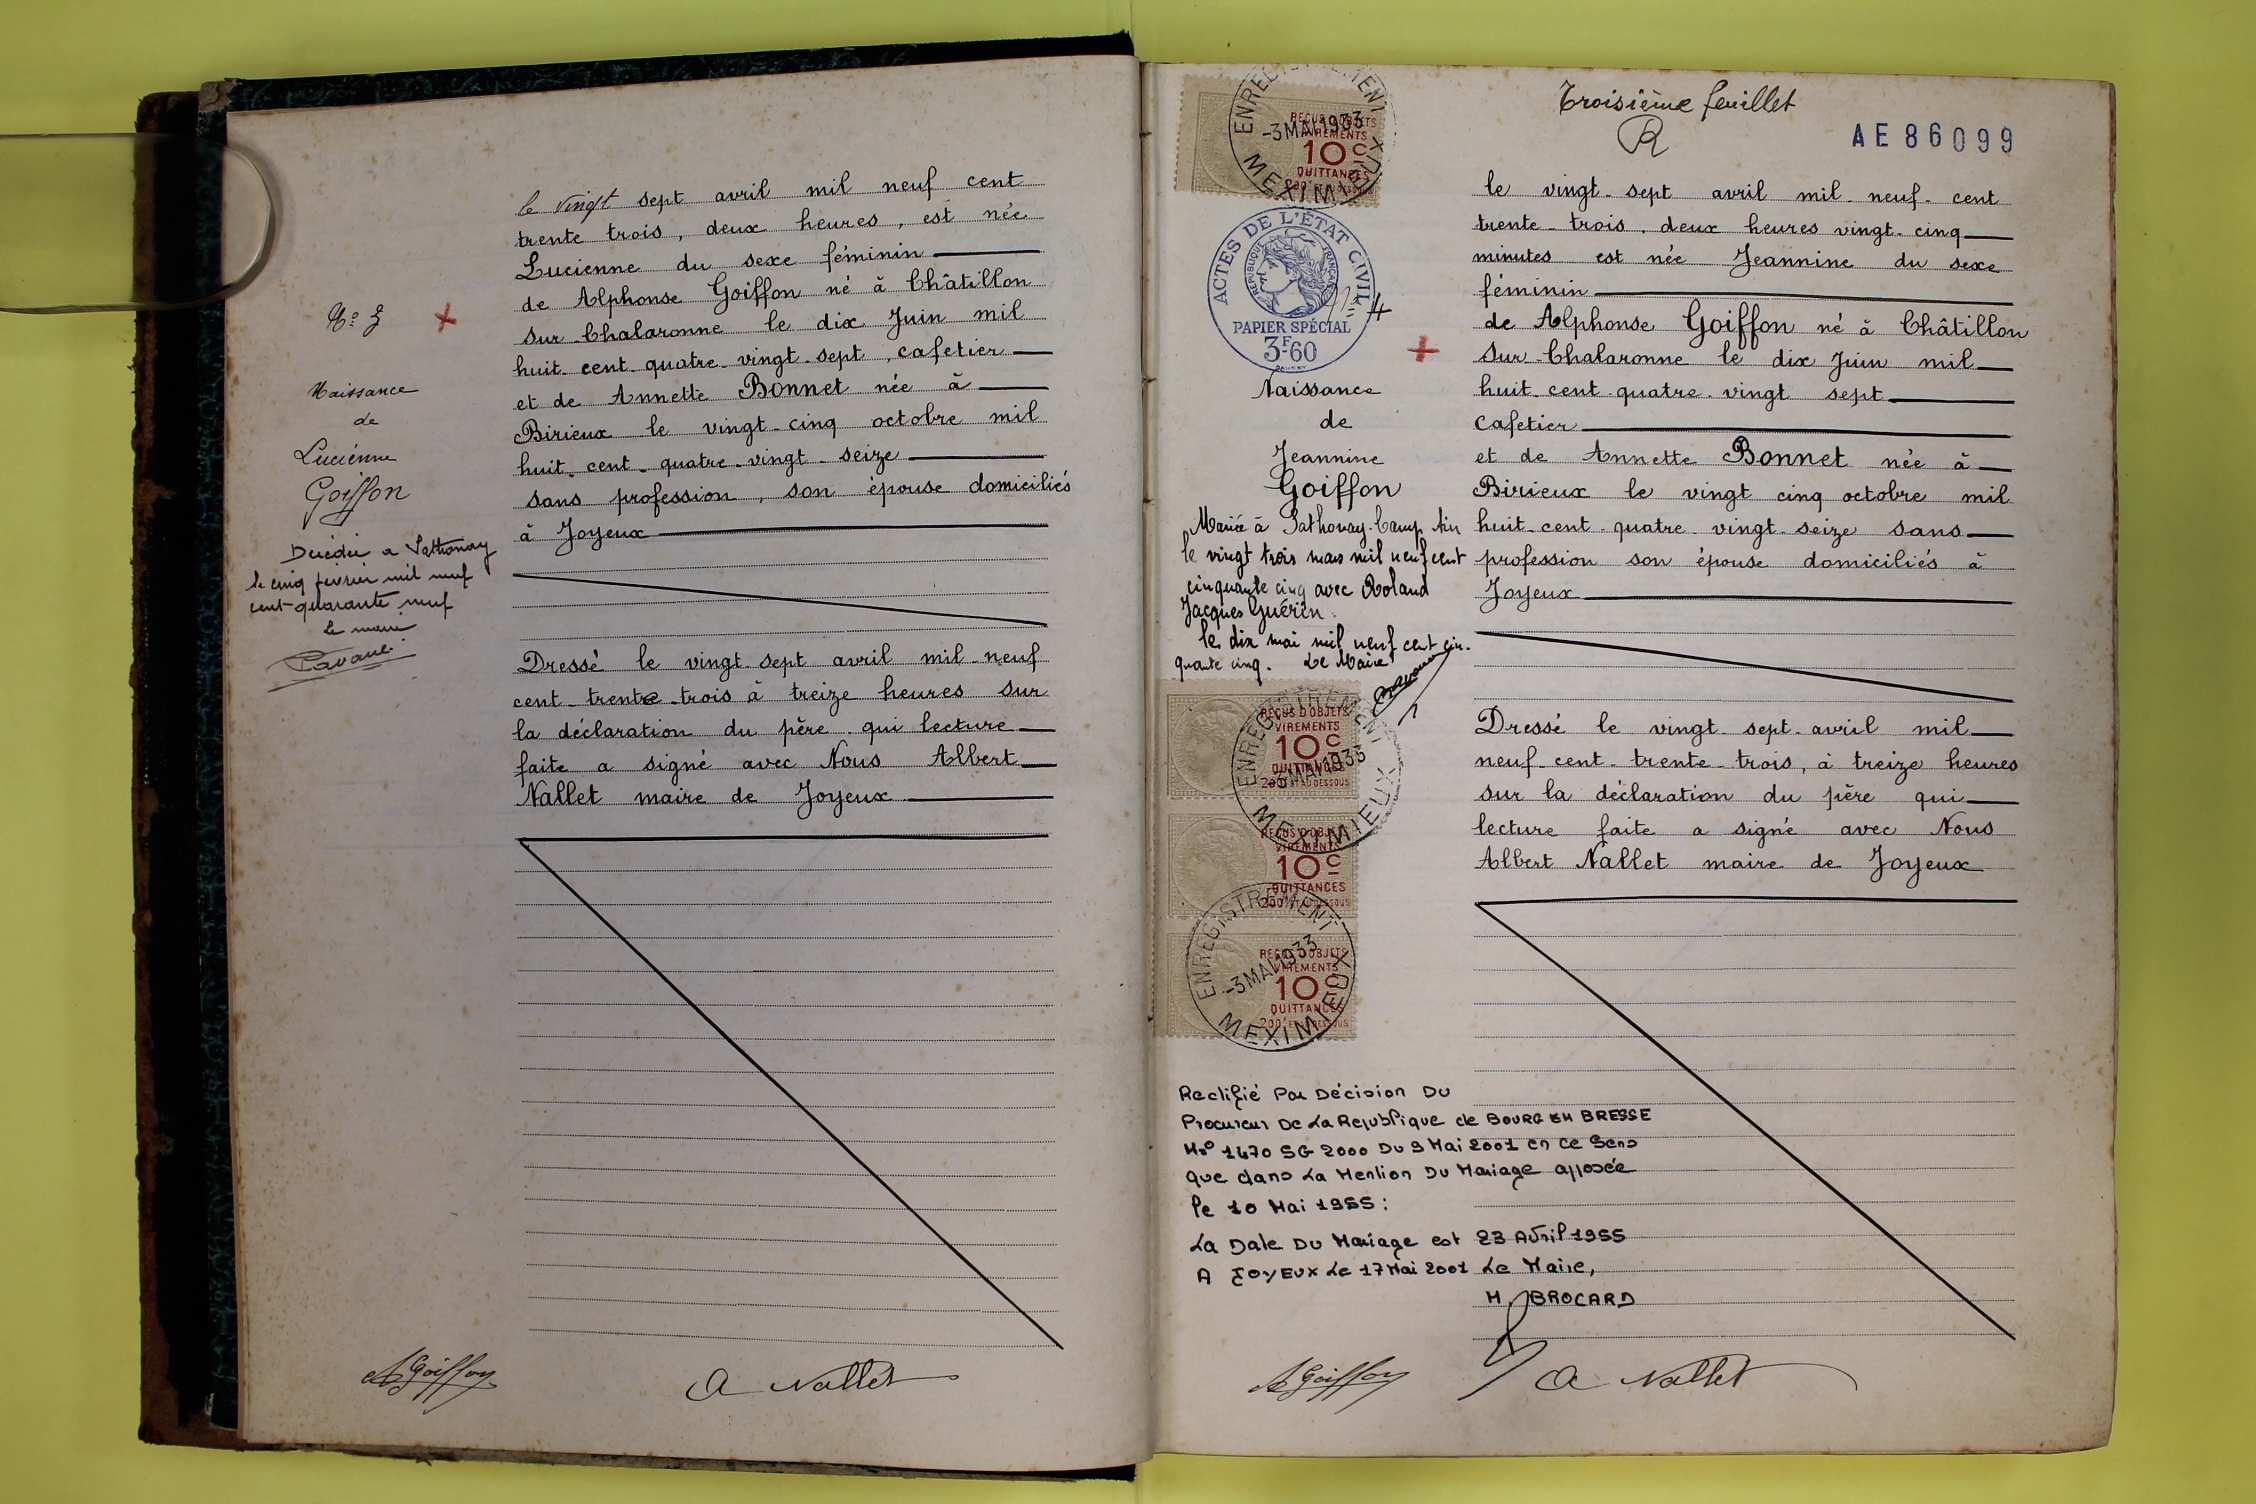 N° 3
Naissance
de
Lucienne
Goiffon
Décédée a Sathonay
le cinq février mil neuf
cent-quarante neuf
le maire
le vingt sept avril mil neuf cent
trente trois, deux heures, est née
Lucienne du sexe féminin
de Alphonse Goiffon né à Châtillon
sur Chalaronne le dix Juin mil
huit cent quatre vingt sept, cafetier
et de Annette Bonnet née à
Birieux le vingt-cinq octobre mil
huit cent quatre vingt seize
sans profession, son épouse domiciliés
à Joyeux
Dressé le vingt sept avril mil neuf
cent trente trois à treize heures sur
la déclaration du père qui lecture
faite a signé avec Nous Albert
Nallet maire de Joyeux
A Goiffon
A Nallet
Troisième feuillet
R
AE 86099
ENREGISTREMENT
-3 MAI 1933
MEXIMIEUX
REÇUS D'OBJETS
VIREMENTS
10 C
QUITTANCES
ACTES DE L'ÉTAT CIVIL
RÉPUBLIQUE FRANÇAISE
PAPIER SPÉCIAL
3F.60
4
Naissance
de
Jeannine
Goiffon
Mariée à Sathonay-Camp Ain
le vingt trois mars mil neuf cent
cinquante cinq avec Roland
Jacques Guérin
le dix mai mil neuf cent cin-
quante cinq. Le Maire
REÇUS D'OBJETS
VIREMENTS
10 C
QUITTANCES
200F ET AU DESSOUS
ENREGISTREMENT
-3 MAI 1933
MEXIMIEUX
REÇUS D'OBJETS
VIREMENTS
10 C
QUITTANCES
200F ET AU DESSOUS
ENREGISTREMENT
-3 MAI 1933
MEXIMIEUX
REÇUS D'OBJETS
VIREMENTS
10 C
QUITTANCES
200F ET AU DESSOUS
le vingt-sept avril mil-neuf-cent
trente-trois, deux heures vingt-cinq
minutes est née Jeannine du sexe
féminin
de Alphonse Goiffon né à Châtillon
sur Chalaronne le dix Juin mil
huit cent quatre vingt sept
cafetier
et de Annette Bonnet née à
Birieux le vingt cinq octobre mil
huit-cent-quatre vingt seize sans
profession son épouse domiciliés à
Joyeux
Dressé le vingt sept avril mil
neuf cent trente trois, à treize heures
sur la déclaration du père qui
lecture faite a signé avec Nous
Albert Nallet maire de Joyeux
Rectifié Par Décision Du
Procureur De La République de BOURG EN BRESSE
N° 1470 SG 2000 Du 9 Mai 2001 en ce Sens
que dans La Mention Du Mariage apposée
le 10 Mai 1955 :
La Date Du Mariage est 23 Avril 1955
A JOYEUX Le 17 Mai 2001 Le Maire,
H. BROCARD
A Goiffon
A Nallet